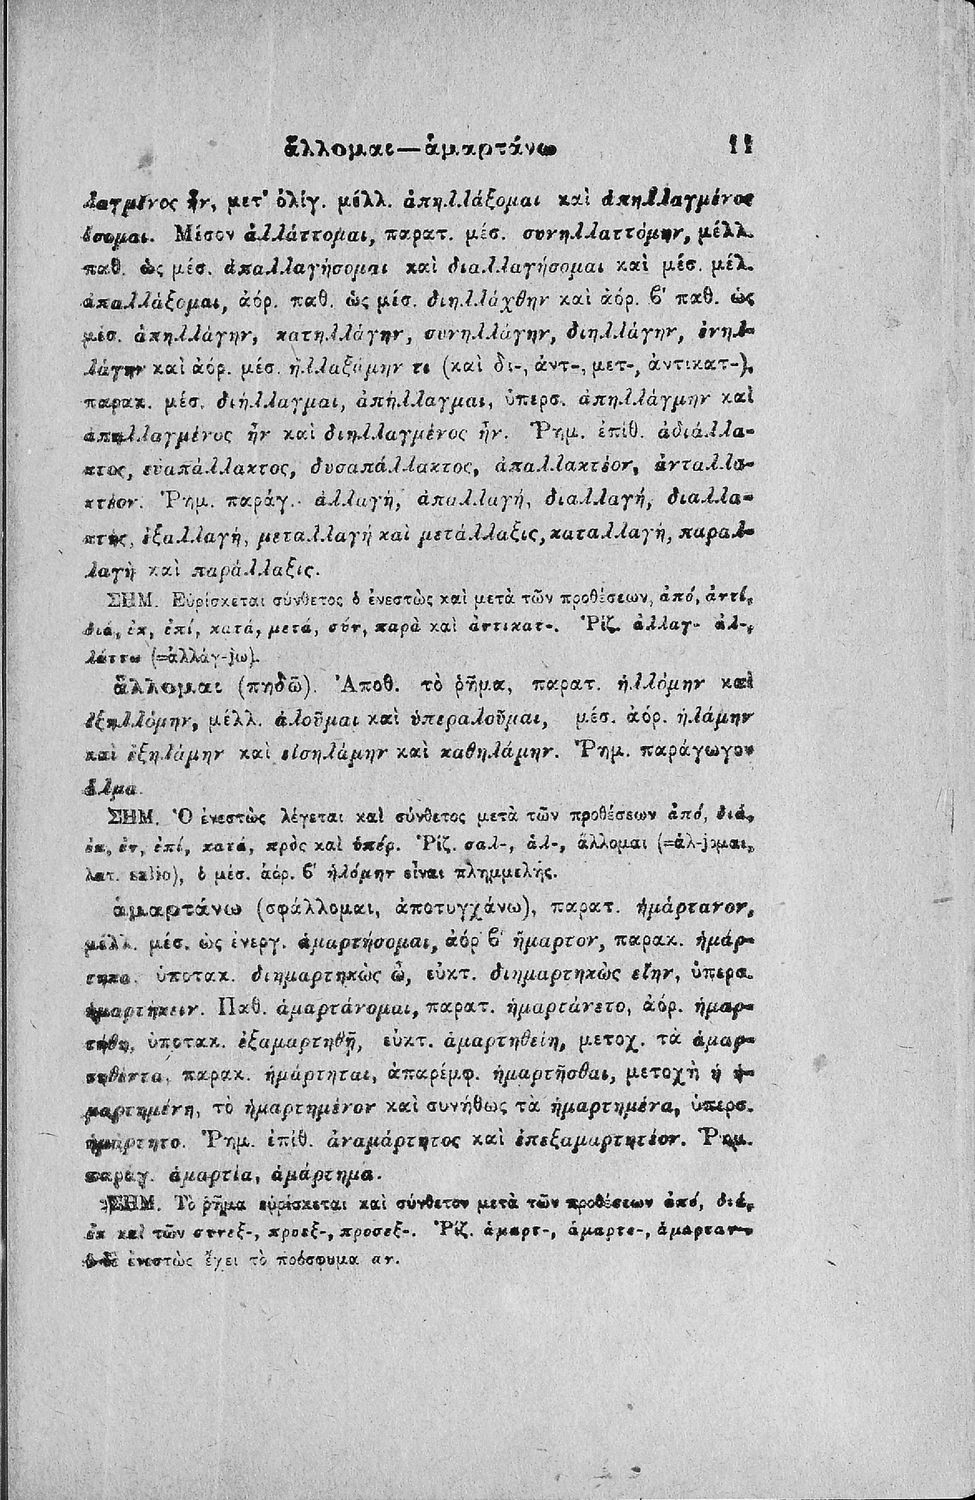 ἅλλομαι—ἁμαρτάνω 11
λαγμένος ἦν, μετ' ὀλίγ. μέλλ. ἀπηλλάξομαι καὶ ἀπηλλαγμένος
ἔσομαι. Μέσον ἀλλάττομαι, παρατ. μέσ. συνηλλαττόμην, μέλλ.
παθ. ὡς μέσ. ἀπαλλαγήσομαι καὶ διαλλαγήσομαι καὶ μέσ. μέλ.
ἀπαλλάξομαι, ἀόρ. παθ. ὡς μέσ. διηλλάχθην καὶ ἀόρ. β' παθ. ὡς
μέσ. ἀπηλλάγην, κατηλλάγην, συνηλλάγην, διηλλάγην, ἐνηλ-
λάγην καὶ ἀόρ. μέσ. ἠλλαξάμην τι (καὶ δι-, ἀντ-, μετ-, ἀντικατ-),
παρακ. μέσ. διήλλαγμαι, ἀπήλλαγμαι, ὑπερσ. ἀπηλλάγμην καὶ
ἀπηλλαγμένος ἦν καὶ διηλλαγμένος ἦν. Ῥημ. ἐπίθ. ἀδιάλλα-
κτος, εὐαπάλλακτος, δυσαπάλλακτος, ἀπαλλακτέον, ἀνταλλα-
κτέον. Ῥημ. παράγ. ἀλλαγή, ἀπαλλαγή, διαλλαγή, διαλλα-
κτής, ἐξαλλαγή, μεταλλαγή καὶ μετάλλαξις, καταλλαγή, παραλ-
λαγὴ καὶ παράλλαξις.
ΣΗΜ. Εὑρίσκεται σύνθετος ὁ ἐνεστὼς καὶ μετὰ τῶν προθέσεων, ἀπό, ἀντί,
διά, ἐκ, ἐπί, κατά, μετά, σύν, παρὰ καὶ ἀντικατ-. Ῥίζ. ἀλλαγ- ἀλ-,
λάττω (=ἀλλάγ-jω).
ἅλλομαι (πηδῶ). Ἀποθ. τὸ ῥῆμα, παρατ. ἡλλόμην καὶ
ἐξηλλόμην, μέλλ. ἁλοῦμαι καὶ ὑπεραλοῦμαι, μέσ. ἀόρ. ἡλάμην
καὶ ἐξηλάμην καὶ εἰσηλάμην καὶ καθηλάμην. Ῥημ. παράγωγον
ἅλμα.
ΣΗΜ. Ὁ ἐνεστὼς λέγεται καὶ σύνθετος μετὰ τῶν προθέσεων ἀπό, διά,
ἐκ, ἐν, ἐπί, κατά, πρὸς καὶ ὑπέρ. Ῥίζ. σαλ-, ἁλ-, ἅλλομαι (=ἅλ-jομαι,
λατ. salio), ὁ μέσ. ἀόρ. β' ἡλόμην εἶναι πλημμελής.
ἁμαρτάνω (σφάλλομαι, ἀποτυγχάνω), παρατ. ἡμάρτανον,
μέλλ. μέσ. ὡς ἐνεργ. ἁμαρτήσομαι, ἀόρ β' ἥμαρτον, παρακ. ἡμάρ-
τηκα. ὑποτακ. διημαρτηκὼς ὦ, εὐκτ. διημαρτηκὼς εἴην, ὑπερσ.
ἡμαρτήκειν. Παθ. ἁμαρτάνομαι, παρατ. ἡμαρτάνετο, ἀόρ. ἡμαρ-
τήθη, ὑποτακ. ἐξαμαρτηθῇ, εὐκτ. ἁμαρτηθείη, μετοχ. τὰ ἁμαρ-
τηθέντα, παρακ. ἡμάρτηται, ἀπαρέμφ. ἡμαρτῆσθαι, μετοχὴ ἡ ἡ-
μαρτημένη, τὸ ἡμαρτημένον καὶ συνήθως τὰ ἡμαρτημένα, ὑπερσ.
ἡμάρτητο. Ῥημ. ἐπίθ. ἀναμάρτητος καὶ ἐπεξαμαρτητέον. Ῥημ.
παράγ. ἁμαρτία, ἁμάρτημα.
ΣΗΜ. Τὸ ῥῆμα εὑρίσκεται καὶ σύνθετον μετὰ τῶν προθέσεων ἀπό, διά,
ἐκ καὶ τῶν συνεξ-, προεξ-, προσεξ-. Ῥίζ. ἁμαρτ-, ἁμαρτε-, ἁμαρταν-
ὁ δὲ ἐνεστὼς ἔχει τὸ πρόσφυμα αν.